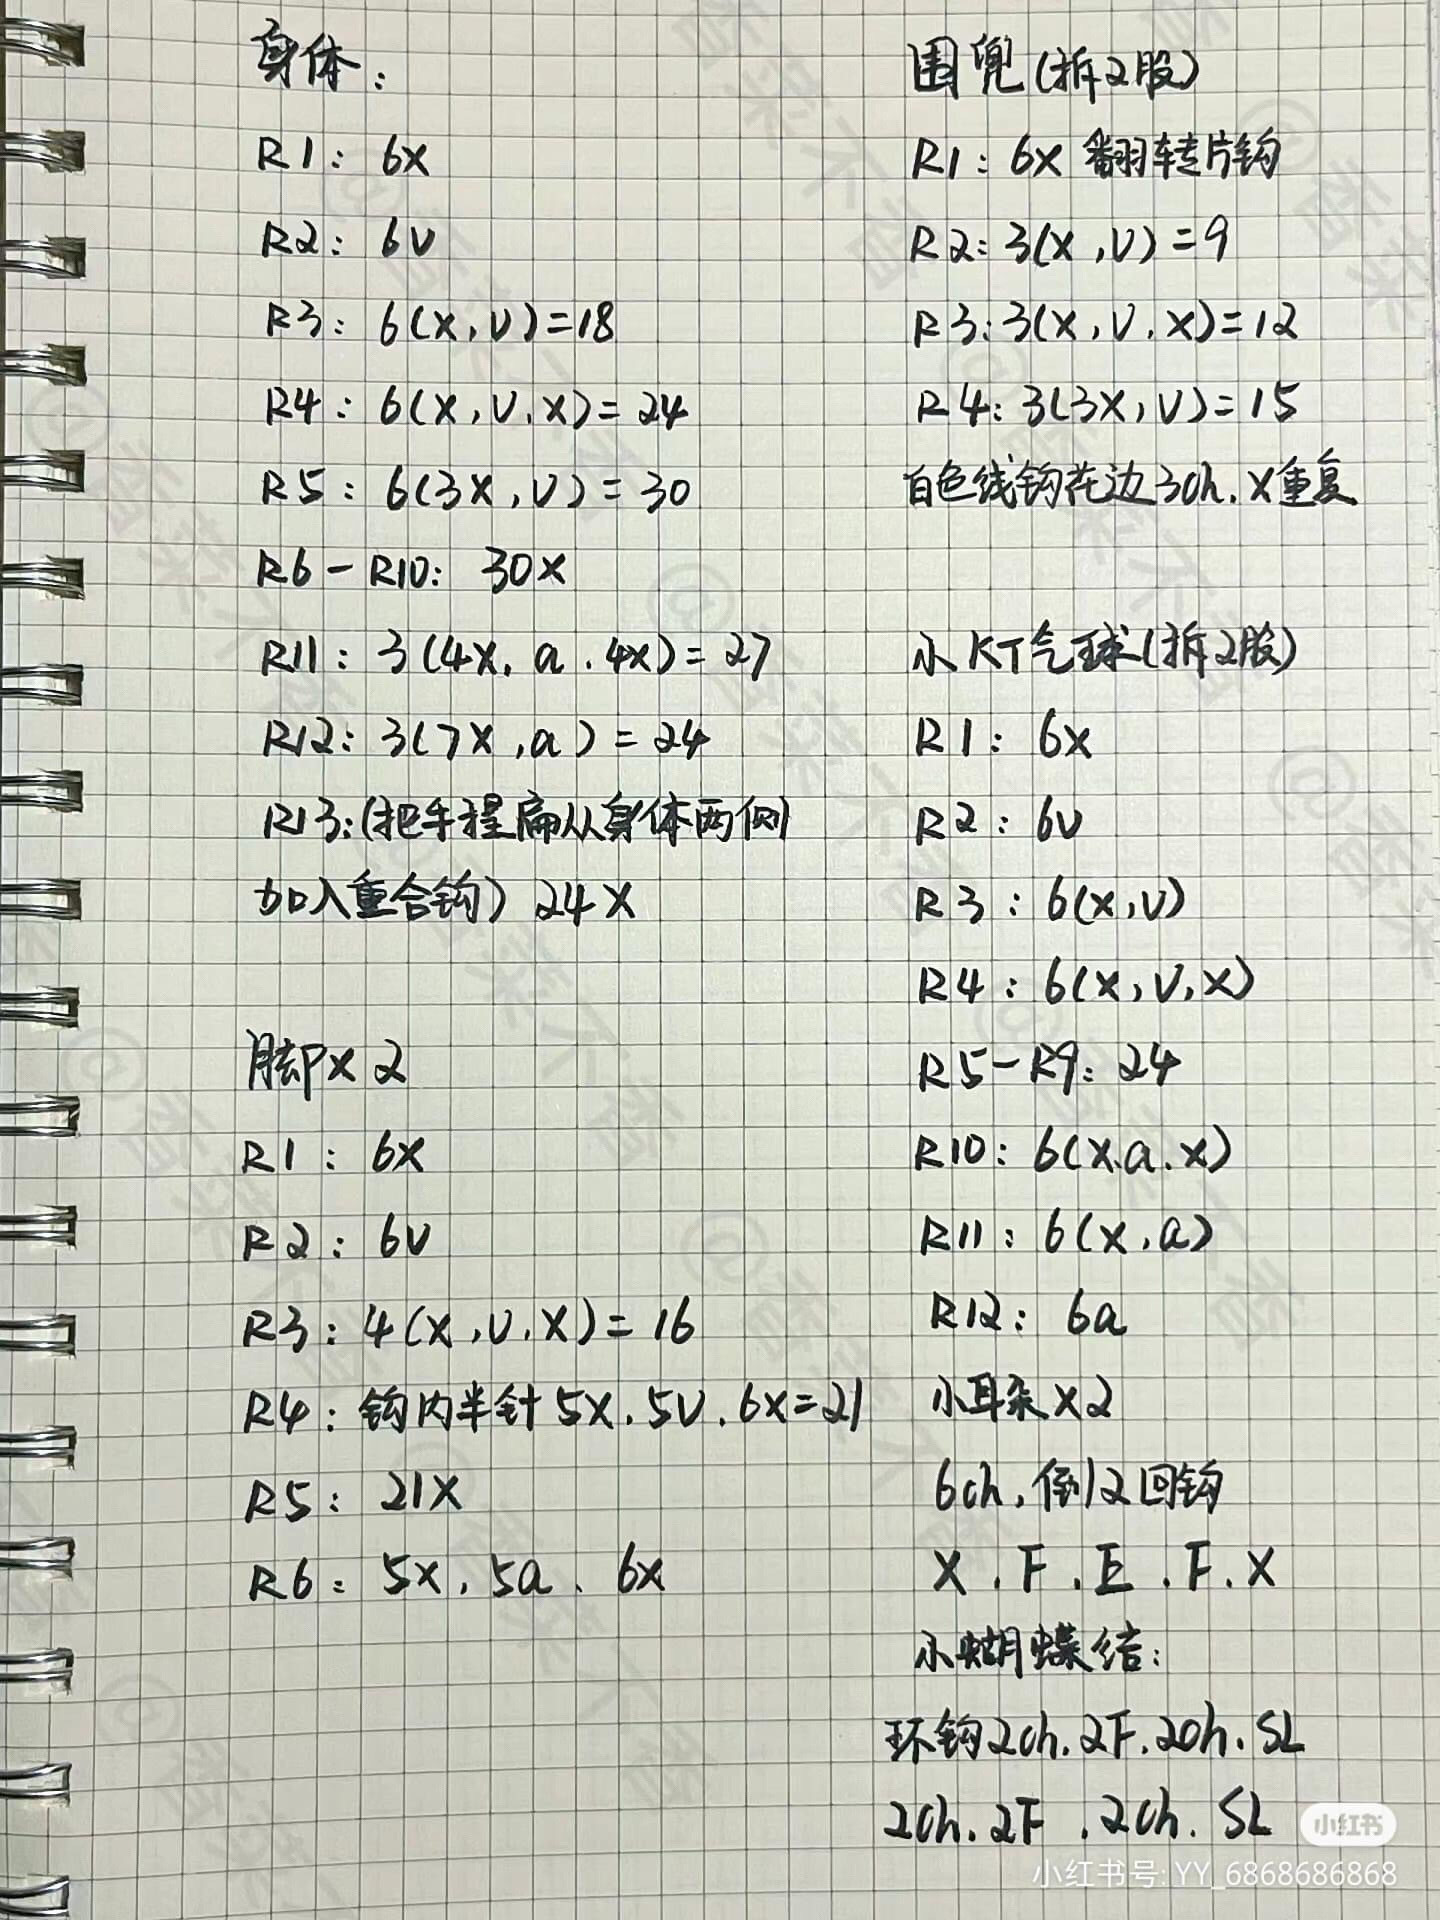 身体：
R1：6x
R2：6v
R3：6(x,v)=18
R4：6(x,v.x)=24
R5：6(3x,v)=30
R6-R10：30x
R11：3(4x.a.4x)=27
R12：3(7x,a)=24
R13：(把手捏扁从身体两侧
加入重合钩) 24x
脚x2
R1：6x
R2：6v
R3：4(x,v.x)=16
R4：钩内半针5x.5v.6x=21
R5：21x
R6：5x.5a、6x
围兜(拆2股)
R1：6x 翻转片钩
R2：3(x,v)=9
R3：3(x,v.x)=12
R4：3(3x,v)=15
白色线钩花边3ch.x重复
小KT气球(拆2股)
R1：6x
R2：6v
R3：6(x,v)
R4：6(x,v,x)
R5-R9：24
R10：6(x.a.x)
R11：6(x,a)
R12：6a
小耳朵x2
6ch,倒2回钩
X.F.E.F.X
小蝴蝶结：
环钩2ch.2F.2ch.SL
2ch.2F.2ch.SL
小红书
小红书号:YY_6868686868
@香菜不香